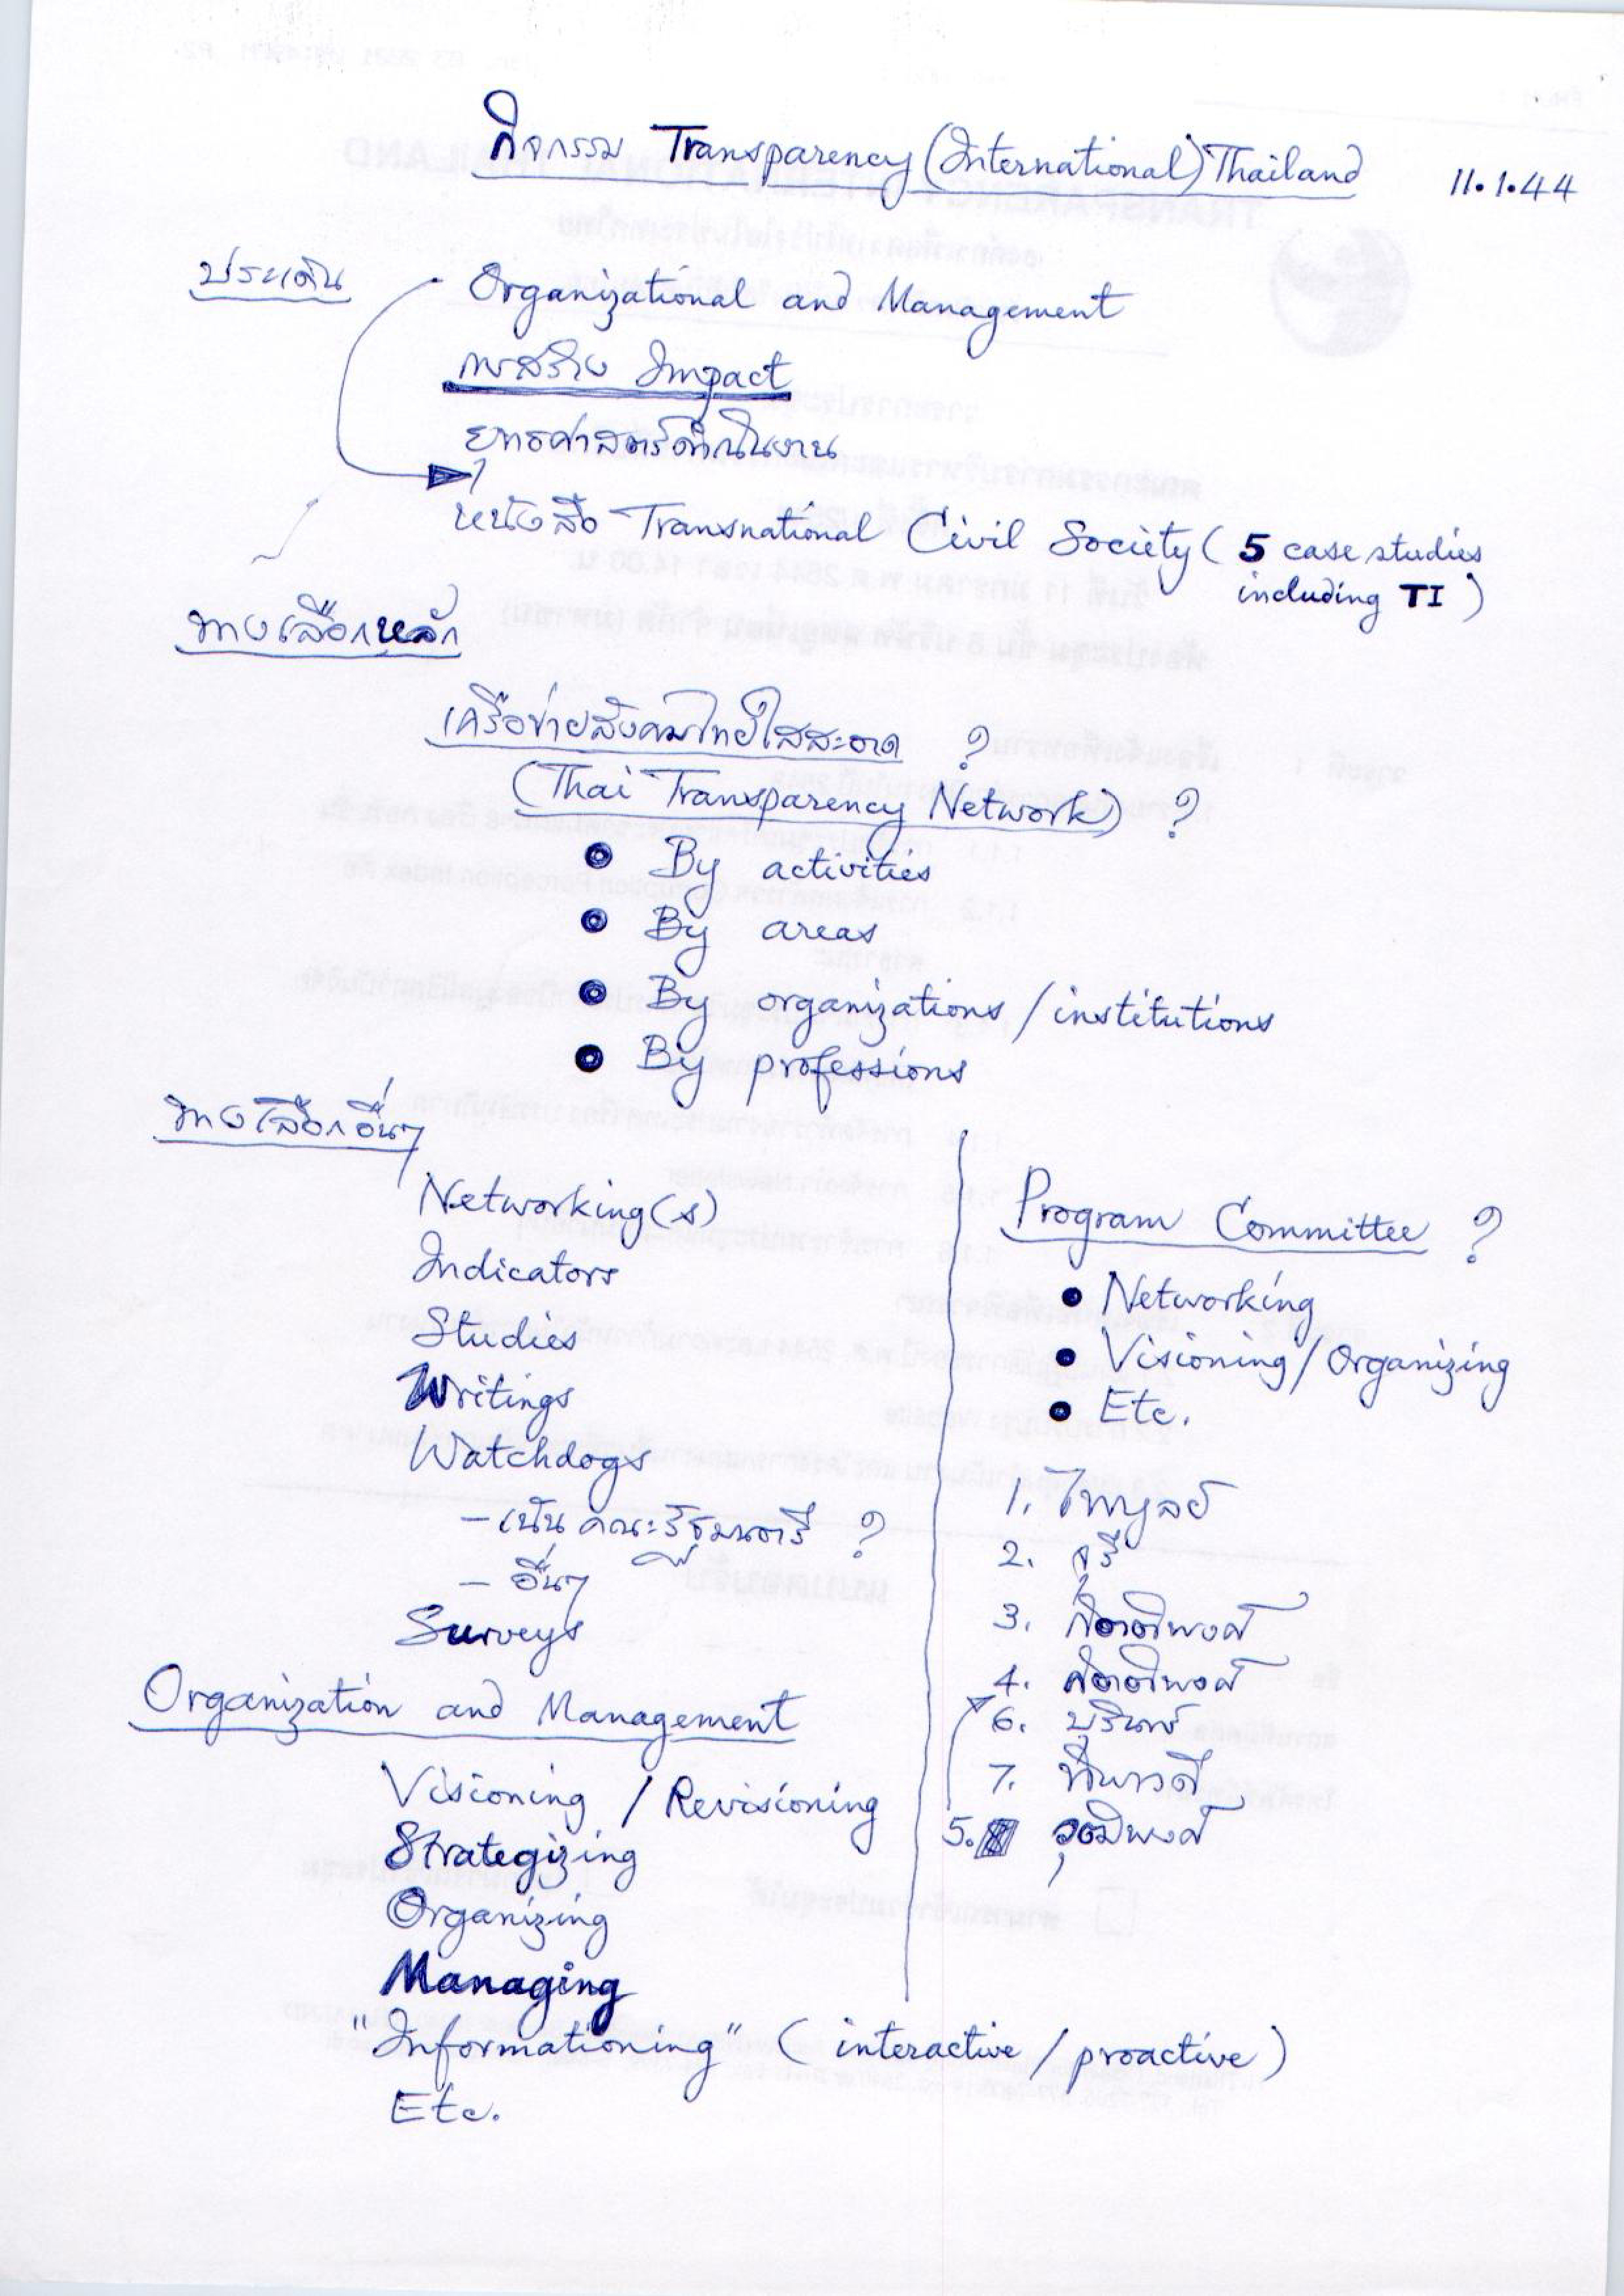 กิจกรรม Transparency (International) Thailand 11.1.44
ประเด็น
Organizational and Management
การสร้าง Impact
ยุทธศาสตร์ดำเนินงาน
หนังสือ Transnational Civil Society ( 5 case studies
including TI )
ทางเลือกหลัก
เครือข่ายสังคมไทยใสสะอาด ?
(Thai Transparency Network) ?
• By activities
• By areas
• By organizations / institutions
• By professions
ทางเลือกอื่นๆ
Networking(s)
Indicators
Studies
Writings
Watchdogs
- เน้น คณะรัฐมนตรี ?
- อื่นๆ
Surveys
Program Committee ?
• Networking
• Visioning / Organizing
• Etc.
1. ไพบูลย์
2. จุรี
3. กิตติพงศ์
4.
6. บุรินทร์
7. ทิพาวดี
5. วุฒิพงศ์
Organization and Management
Visioning / Revisioning
Strategizing
Organizing
Managing
"Informationing" ( interactive / proactive )
Etc.